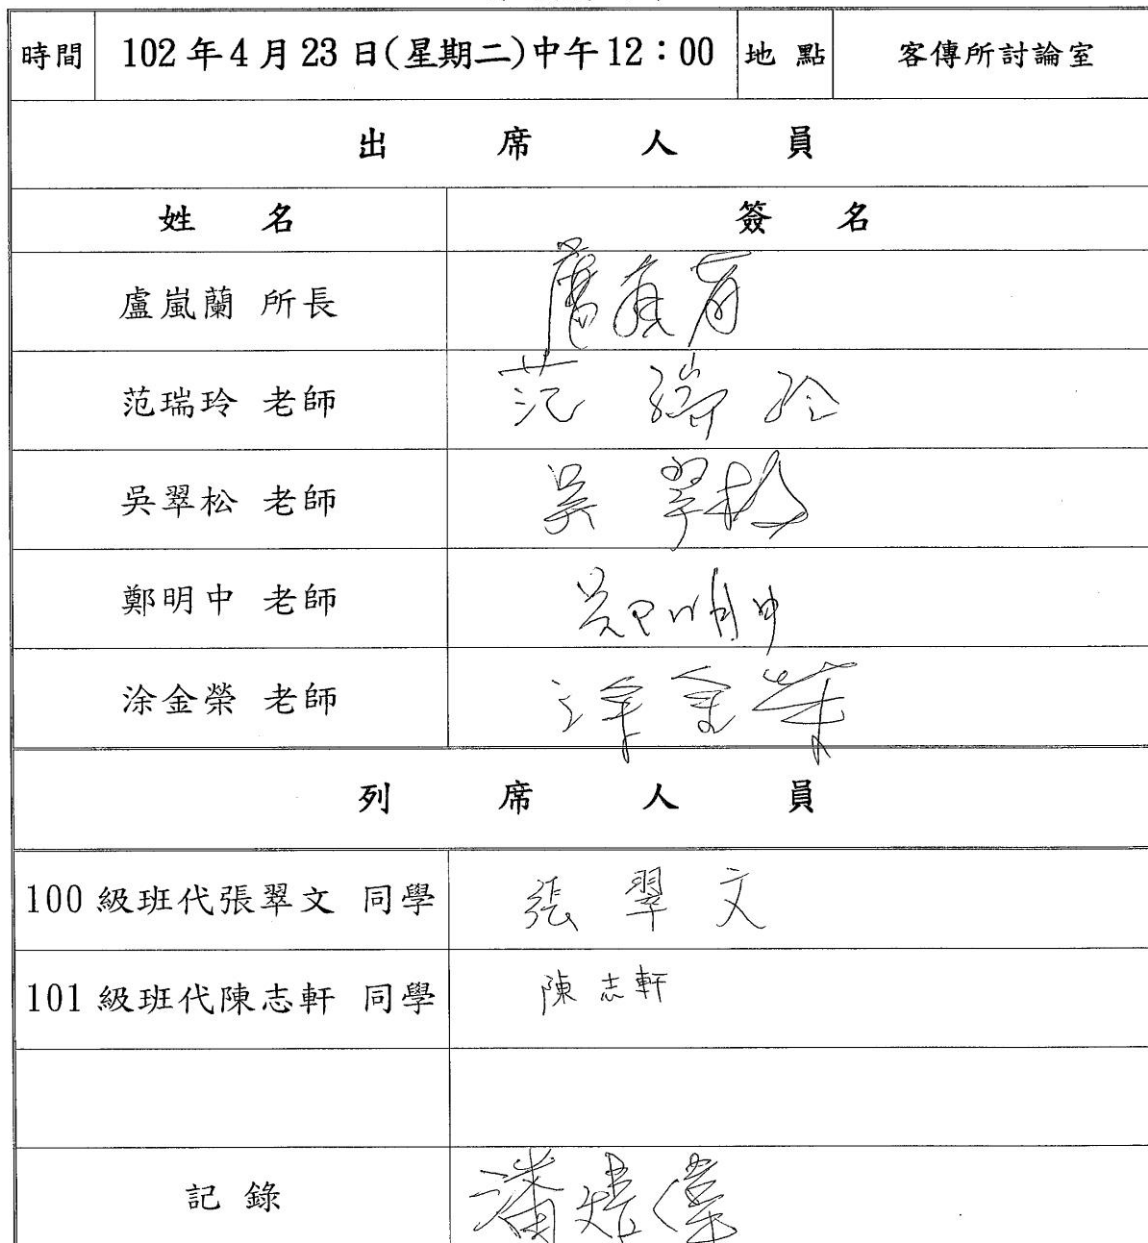 時間 102年4月23日(星期二)中午12：00 地點 客傳所討論室
出席人員
姓名 簽名
盧嵐蘭 所長
范瑞玲 老師 范瑞玲
吳翠松 老師 吳翠松
鄭明中 老師 鄭明中
涂金榮 老師 涂金榮
列席人員
100級班代張翠文 同學 張翠文
101級班代陳志軒 同學 陳志軒
記錄 潘